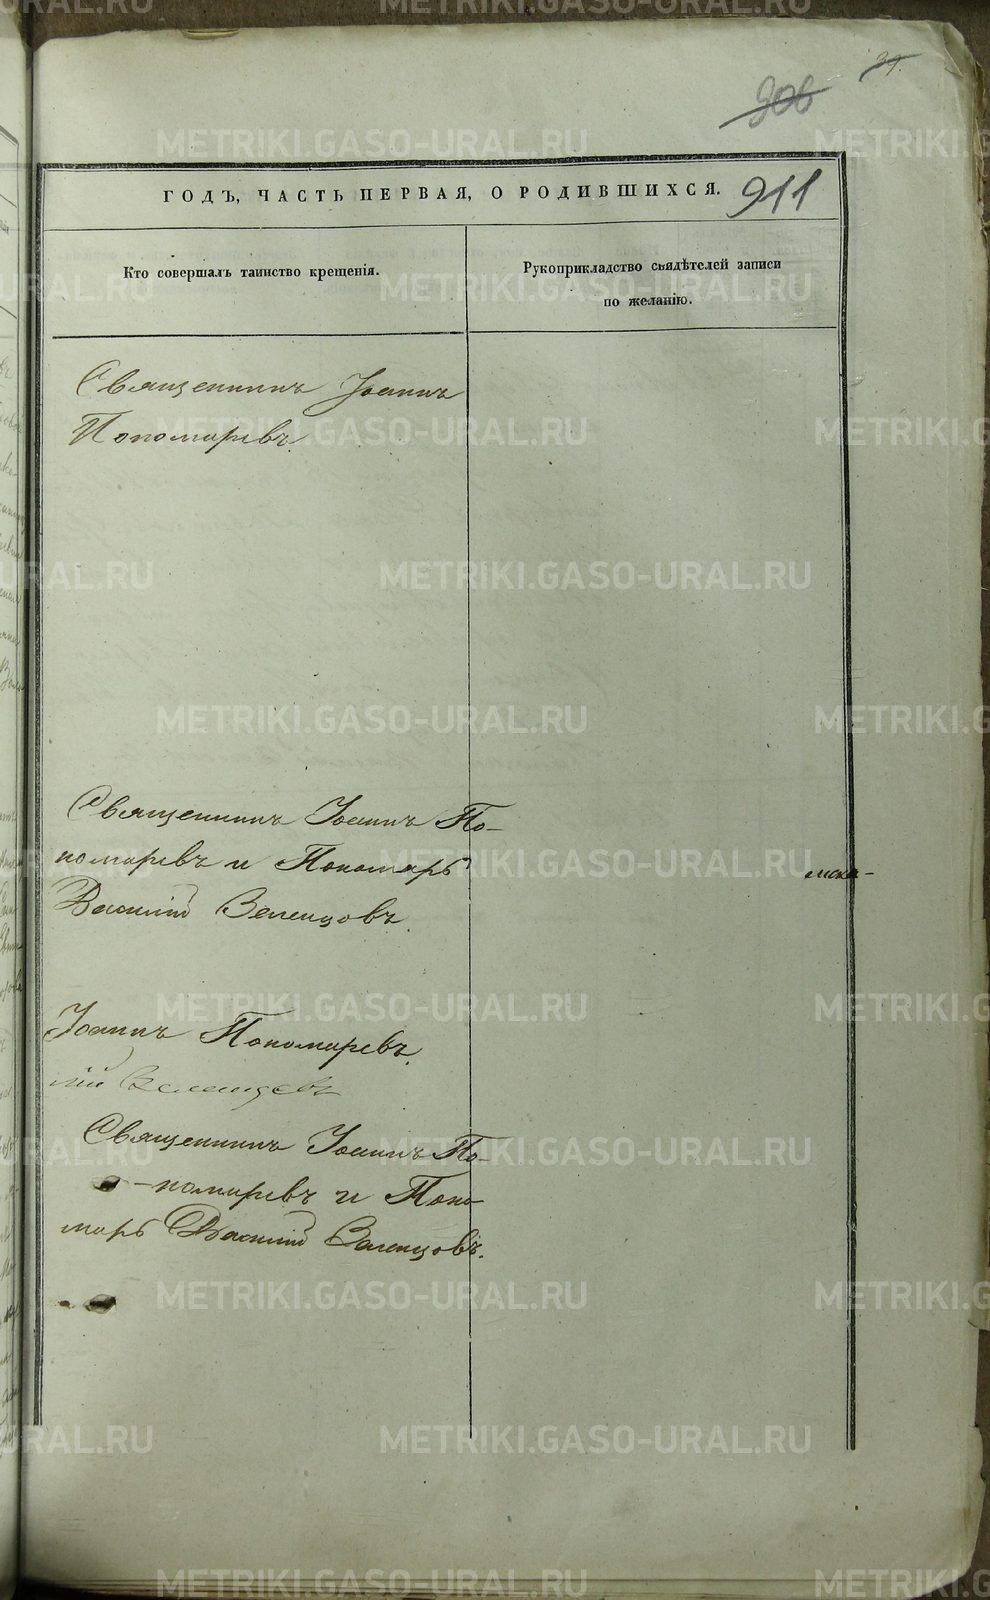 39.
306
ГОДЪ, ЧАСТЬ ПЕРВАЯ, О РОДИВШИХСЯ.
911
Кто совершалъ таинство крещенія.
Рукоприкладство свидѣтелей записи
по желанію.
Священникъ Іоаннъ
Пономаревъ.
Священникъ Іоаннъ По-
номаревъ и Пономарь
Василій Зеленцовъ.
Іоаннъ Пономаревъ.
лій Зеленцовъ
Священникъ Іоаннъ По-
-номаревъ и Поно-
марь Василій Зеленцовъ.
METRIKI.GASO-URAL.RU